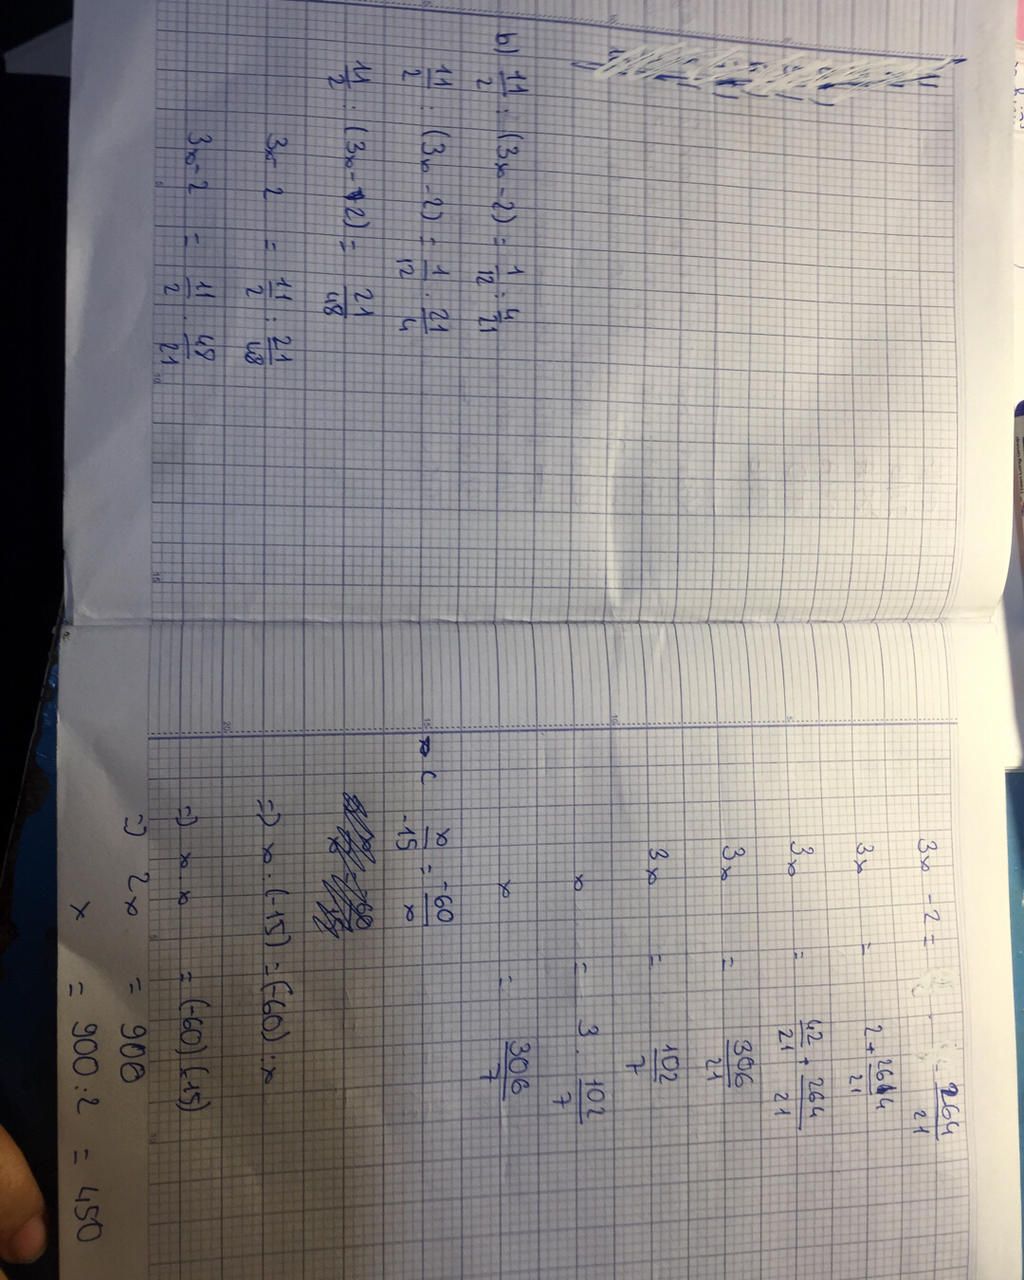 b) 11/2 : (3x - 2) = 1/12 : 4/21
11/2 : (3x - 2) = 1/12 . 21/4
11/2 : (3x - 2) = 21/48
3x - 2 = 11/2 : 21/48
3x - 2 = 11/2 . 48/21
3x - 2 = 264/21
3x = 2 + 264/21
3x = 42/21 + 264/21
3x = 306/21
3x = 102/7
x = 3 . 102/7
x = 306/7
c x/-15 = -60/x
=) x . (-15) = (-60) : x
=) x . x = (-60) (-15)
=) 2x = 900
x = 900 : 2 = 450